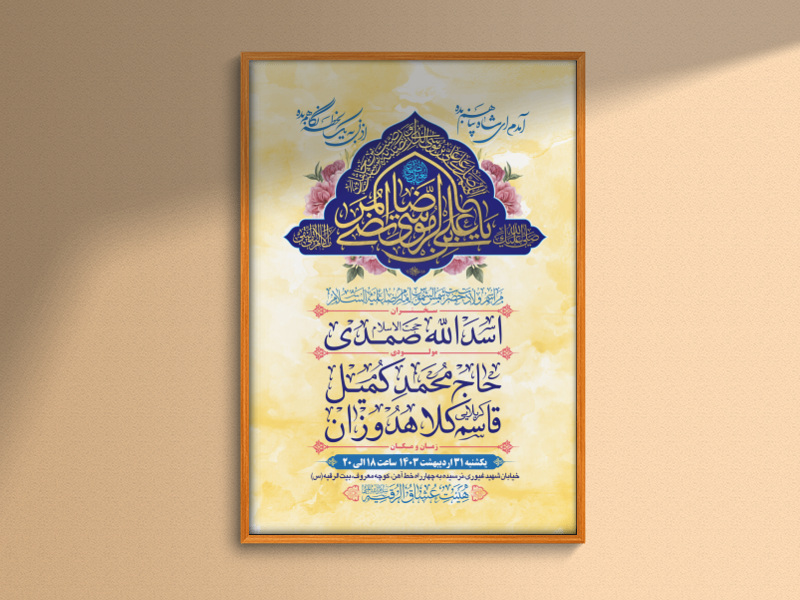 آمدم ای شاه پناهم بده
اذنی به یک لحظه نگاهم بده
یا علی بن موسی الرضا المرتضی
مراسم ولادت حضرت شمس الشموس امام رضا علیه السلام
سخنران
حجت الاسلام
اسدالله صمدی
مولودی
حاج محمد کمیل
کربلایی
قاسم کلاهدوزان
زمان و مکان
یکشنبه ۳۱ اردیبهشت ۱۴۰۳ ساعت ۱۸ الی ۲۰
خیابان شهید غیوری، نرسیده به چهارراه خط آهن، کوچه معروف، بیت الرقیه (س)
هیئت عشاق الرقیه